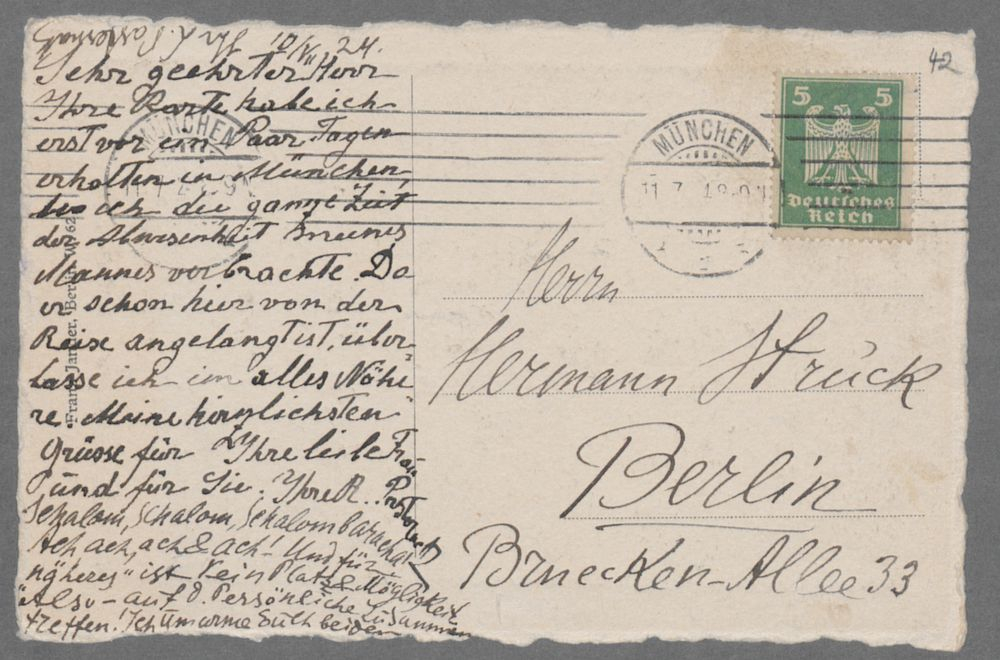 Ihr L. Pasternak
10/VII 24.
Sehr geehrter Herr
Ihre Karte habe ich
erst vor ein Paar Tagen
erhalten in München,
wo ich die ganze Zeit
der Abwesenheit meines
Mannes verbrachte. Da
er schon hier von der
Reise angelangt ist, über-
lasse ich im alles Nähe
re. Meine herzlichsten
Grüsse für Ihre liebe Frau
und für Sie. Ihre R. Pasternak
Schalom, Schalom, Schalom
Ach ach, ach & ach! Und für
"näheres" ist kein Platz & Möglichkeit
"Also – auf d. Persönliche Zusammen
treffen! Ich umarme Euch beiden
Franz Jander, Berlin W. 62
MÜNCHEN
MÜNCHEN
11 7
8-9
42
5 5
Deutsches
Reich
Herrn
Hermann Struck
Berlin
Bruecken-Allee 33